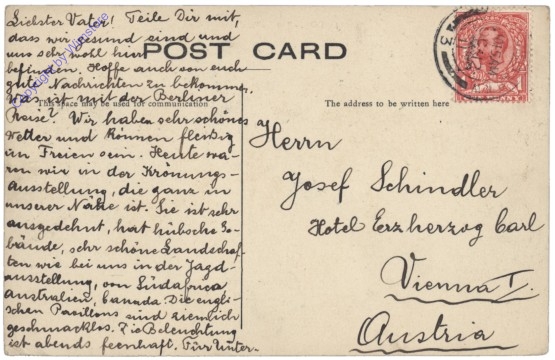 Liebster Vater! Teile Dir mit,
dass wir gesund sind und
uns sehr wohl hier
befinden. Hoffe auch von euch
gute Nachrichten zu bekommen.
Was ist mit der Berliner
Reise? Wir haben sehr schönes
Wetter und können fleißig
im Freien sein. Heute wa-
ren wir in der Krönungs-
Ausstellung, die ganz in
unserer Nähe ist. Sie ist sehr
ausgedehnt, hat hübsche Ge-
bäude, sehr schöne Landschaf-
ten wie bei uns in der Jagd-
ausstellung, von Südafrica
Australien, Canada. Die engli-
schen Pavillons sind ziemlich
geschmacklos. Die Beleuchtung
ist abends feenhaft. Für Unter-
POST CARD
This space may be used for communication
The address to be written here
Herrn
Josef Schindler
Hotel Erzherzog Carl
Vienna I.
Austria